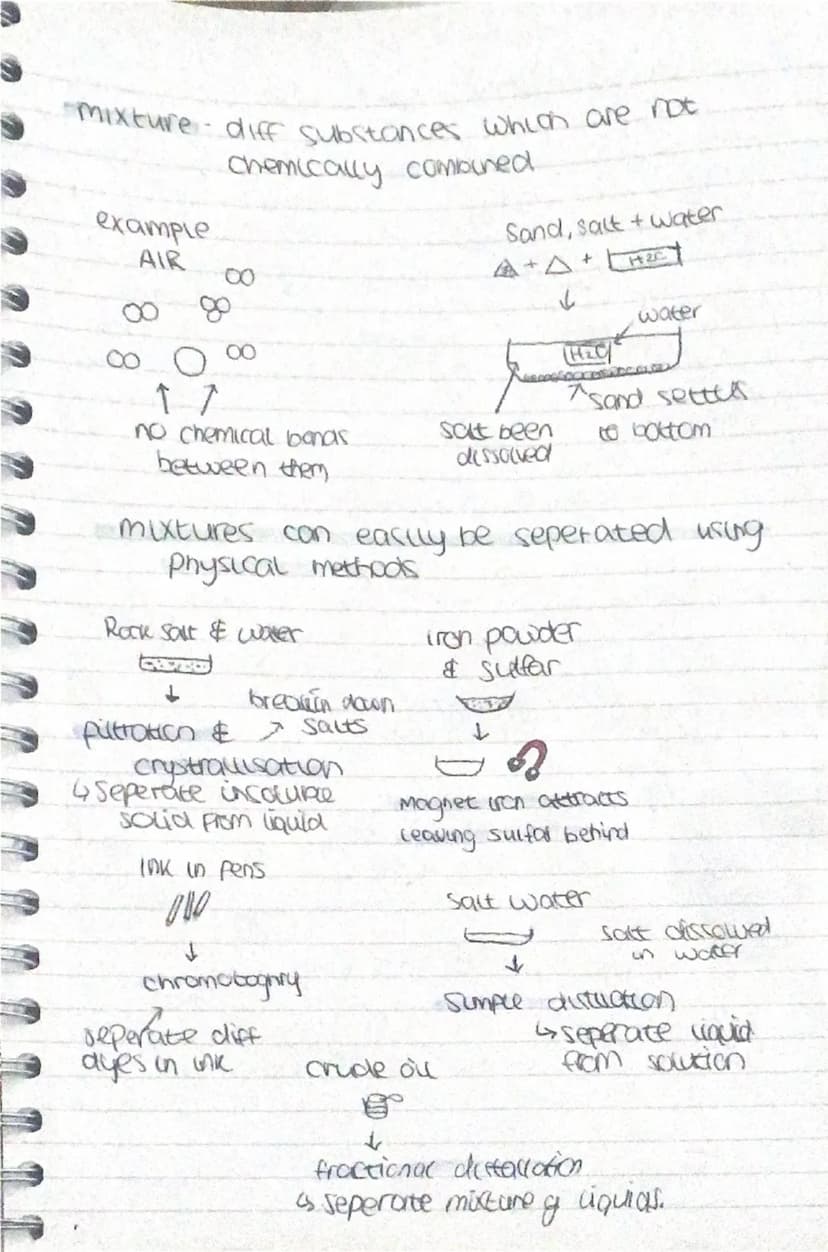 mixture - diff substances which are not
chemically combined
example
AIR
no chemical bonds
between them
Sand, salt + water
+ + H2O
water
H2O
sand settles
to bottom
salt been
dissolved
mixtures can easily be seperated using
physical methods
Rock salt & water
breakin down
salts
filtration &
crystralisation
↳ seperate insoluble
solid from liquid
iron powder
& sulfar
Magnet iron attracts
leaving sulfar behind
Ink in pens
chromatogrry
seperate diff
dyes in ink
salt water
salt dissolved
in water
simple distillation
↳ seperate liquid
from solution
crude oil
fractional distallation
↳ seperate mixture of liquids.